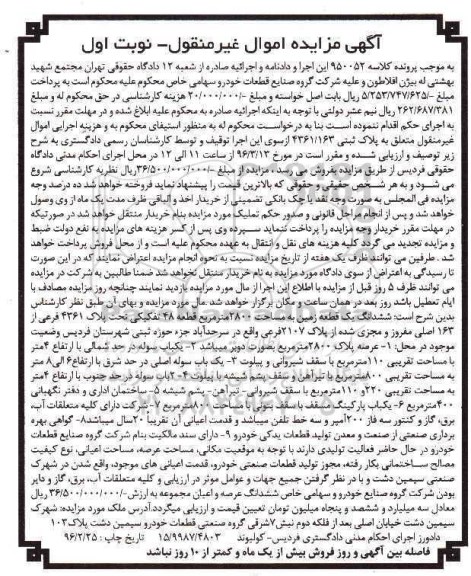 آگهی مزایده اموال غیرمنقول- نوبت اول
به موجب پرونده کلاسه ۹۵۰۰۵۲ این اجرا و دادنامه و اجرائیه صادره از شعبه ۱۲ دادگاه حقوقی تهران مجتمع شهید
بهشتی له بیژن افلاطون و علیه شرکت گروه صنایع قطعات خودرو سهامی خاص محکوم علیه محکوم است به پرداخت
مبلغ -/۵/۲۵۳/۷۴۷/۶۲۵ ریال بابت اصل خواسته و مبلغ -/۲۰/۰۰۰/۰۰۰ هزینه کارشناسی در حق محکوم له و مبلغ
۲۶۲/۶۸۷/۳۸۱ ریال نیم عشر دولتی با توجه به اینکه اجرائیه صادره به محکوم علیه ابلاغ شده و در مهلت مقرر نسبت
به اجرای حکم اقدام ننموده است بنا به درخواست محکوم له به منظور استیفای محکوم به و هزینه اجرایی اموال
غیرمنقول متعلق به پلاک ثبتی ۴۳۶۱/۱۶۳ ازسوی این اجرا توقیف و توسط کارشناسان رسمی دادگستری به شرح
زیر توصیف و ارزیابی شده و مقرر است در مورخ ۹۶/۳/۱۳ از ساعت ۱۱ الی ۱۲ در محل اجرای احکام مدنی دادگاه
حقوقی فردیس از طریق مزایده بفروش می رسد. مزایده از مبلغ -/۳۶/۵۰۰/۰۰۰/۰۰۰ ریال نظریه کارشناسی شروع
می شود و به هر شخص حقیقی و حقوقی که بالاترین قیمت را پیشنهاد نماید فروخته خواهد شد ده درصد وجه
مزایده فی المجلس به صورت وجه نقد یا چک بانکی تضمینی از خریدار اخذ و الباقی ظرف مدت یک ماه از وی وصول
خواهد شد و پس از انجام مراحل قانونی و صدور حکم تملیک مورد مزایده بنام خریدار منتقل خواهد شد در صورتیکه
در مهلت مقرر خریدار وجه مزایده را پرداخت ننماید سپرده وی پس از کسر هزینه های مزایده به نفع دولت ضبط
و مزایده تجدید می گردد کلیه هزینه های نقل و انتقال به عهده محکوم علیه است و از محل فروش پرداخت خواهد
شد. طرفین می توانند ظرف یک هفته از تاریخ مزایده نسبت به نحوه انجام مزایده اعتراض نمایند که در این صورت
تا رسیدگی به اعتراض از سوی دادگاه مورد مزایده به نام خریدار منتقل نخواهد شد ضمنا طالبین به شرکت در مزایده
می توانند ظرف ۵ روز قبل از مزایده با اطلاع این اجرا از مال مورد مزایده بازدید نمایند چنانچه روز مزایده مصادف با
ایام تعطیل باشد روز بعد در همان ساعت و مکان برگزار خواهد شد. مال مورد مزایده و بهای آن طبق نظر کارشناس
بدین شرح است: ششدانگ یک قطعه زمین به مساحت ۲۸۰۰مترمربع قطعه ۴۸ تفکیکی تحت پلاک ۴۳۶۱ فرعی از
۱۶۳ اصلی مفروز و مجزی شده از پلاک ۲۱۰۷ فرعی واقع در سرحدآباد جزء حوزه ثبتی شهرستان فردیس وضعیت
موجود در محل: ۱- عرصه پلاک ۲۸۰۰مترمربع بصورت دوبر میباشد ۲- یکباب سوله در حد شمالی با ارتفاع ۴متر
با مساحت تقریبی ۱۱۰مترمربع با سقف شیروانی و پیلوت ۳- یک باب سوله اصلی در حد شرق با ارتفاع۶ الی ۸ متر
به مساحت تقریبی ۸۰۰مترمربع با تیرآهن و سقف پشم شیشه با پیلوت ۴-۲باب سوله درحدجنوب با ارتفاع ۴متر
به مساحت تقریبی ۲۲۰ و ۱۱۰مترمربع با سقف شیروانی- تیرآهن- پشم شیشه ۵- ساختمان اداری و دفتر نگهبانی
۴۰۰مترمربع ۶- یکباب پارکینگ مسقف با سقف بتونی با مساحت ۱۰۰مترمربع ۷- شرکت دارای کلیه متعلقات آب،
برق، گاز و کنتور سه فاز ۲۰۰آمپر و سه خط تلفن میباشد و قدمت اعیانی آن تقریباً ۲۰سال میباشد۸- گواهی بهره
برداری صنعتی از صنعت و معدن تولید قطعات یدکی خودرو ۹- دارای سند مالکیت بنام شرکت گروه صنایع قطعات
خودرو در حال حاضر فعالیت تولیدی دارند با توجه به موقعیت مکانی، مساحت عرصه، مساحت اعیانی، نوع کیفیت
مصالح ساختمانی بکار رفته، مجوز تولید قطعات صنعتی خودرو، قدمت اعیانی های موجود، واقع شدن در شهرک
صنعتی سیمین دشت و با در نظر گرفتن جمیع جهات و عوامل موثر در ارزیابی و کلیه متعلقات آب، برق، گاز و دایر
بودن شرکت گروه صنایع قطعات خودرو و سهامی خاص ششدانگ عرصه و اعیان مجموعه به ارزش-/۳۶/۵۰۰/۰۰۰/۰۰۰ ریال
معادل سه میلیارد و ششصد و پنجاه میلیون تومان تعیین قیمت و ارزیابی میگردد.آدرس ملک مورد مزایده: شهرک
سیمین دشت خیابان اصلی بعد از فلکه دوم نبش ۷شرقی گروه صنعتی قطعات خودرو سیمین دشت پلاک۱۰۳
دادورز اجرای احکام مدنی دادگستری فردیس- کولیوند ۱۵/۹۹۸۷/۴۸۰۳ تاریخ چاپ : ۹۶/۲/۲۵
فاصله بین آگهی و روز فروش بیش از یک ماه و کمتر از ۱۰ روز نباشد